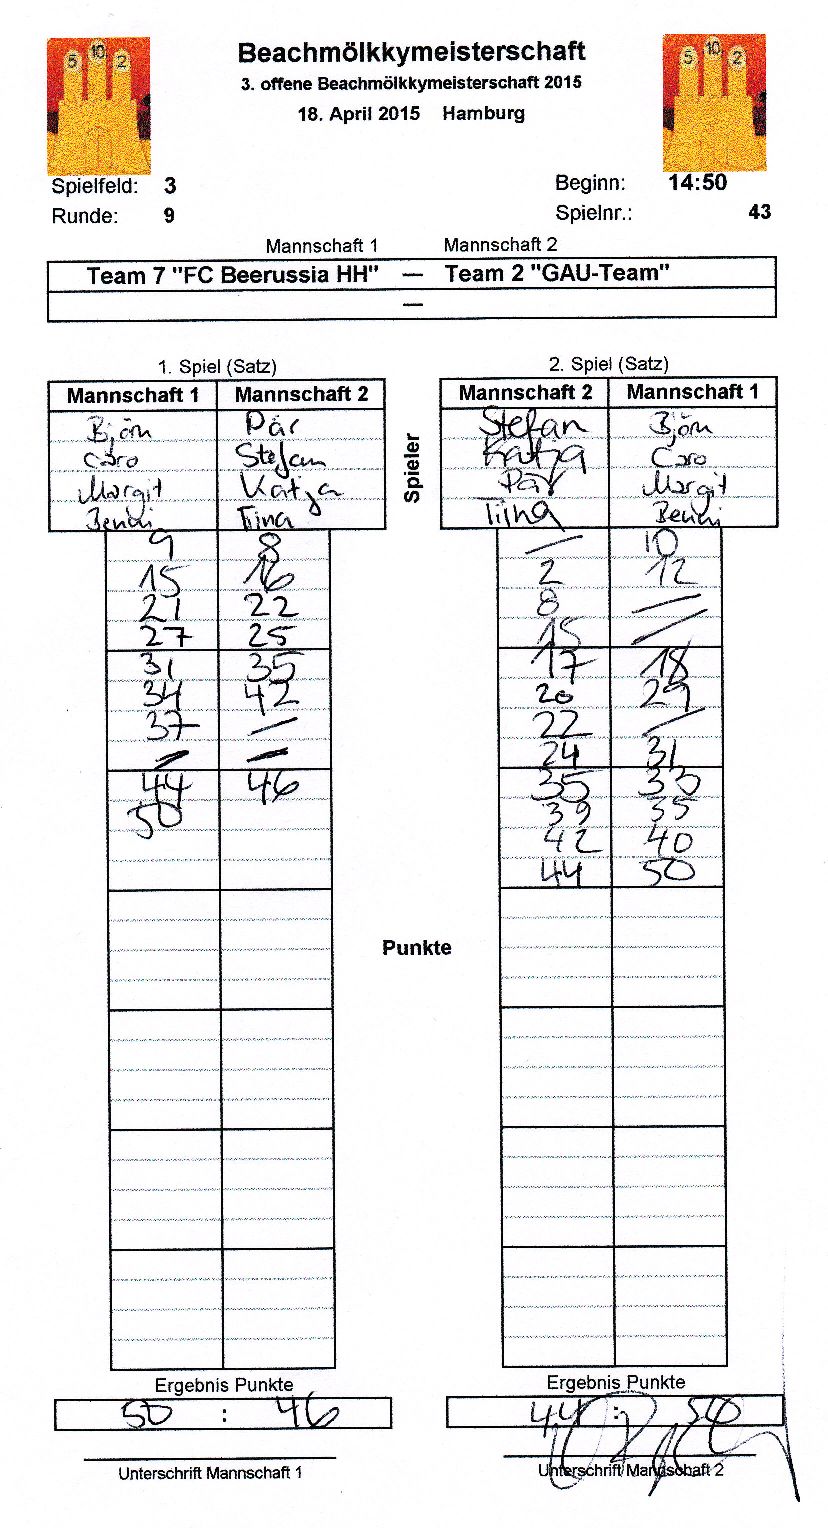 5 10 2
5 10 2
Beachmölkkymeisterschaft
3. offene Beachmölkkymeisterschaft 2015
18. April 2015 Hamburg
Spielfeld: 3
Beginn: 14:50
Runde: 9
Spielnr.: 43
Mannschaft 1 Mannschaft 2
Team 7 "FC Beerussia HH" — Team 2 "GAU-Team"
—
1. Spiel (Satz)
Mannschaft 1 Mannschaft 2
Björn Pär
Caro Stefan
Margit Katja
Benni Tiina
9 8
15 16
21 22
27 25
31 35
34 42
37 —
— —
44 46
50
Ergebnis Punkte
50 : 46
Unterschrift Mannschaft 1
Spieler
Punkte
2. Spiel (Satz)
Mannschaft 2 Mannschaft 1
Stefan Björn
Katja Caro
Pär Margit
Tiina Benni
— 10
2 12
8 —
15 —
17 18
20 29
22 —
24 31
35 33
39 35
42 40
44 50
Ergebnis Punkte
44 : 50
Unterschrift Mannschaft 2